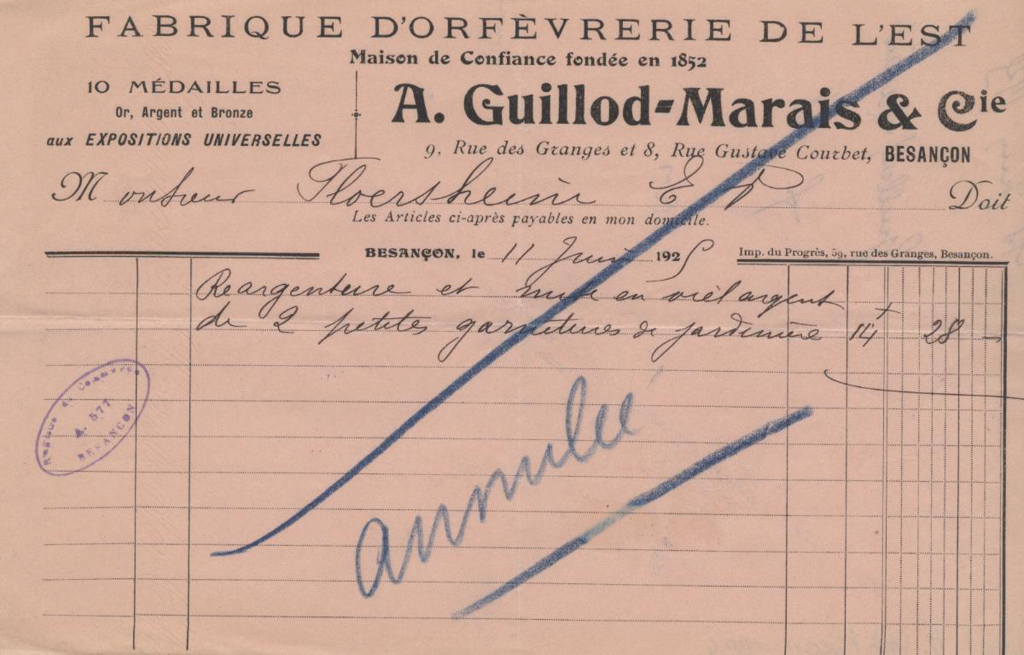 FABRIQUE D'ORFÈVRERIE DE L'EST
Maison de Confiance fondée en 1852
10 MÉDAILLES
Or, Argent et Bronze
aux EXPOSITIONS UNIVERSELLES
A. Guillod-Marais & Cie
9, Rue des Granges et 8, Rue Gustave Courbet, BESANÇON
Monsieur Floersheim E Doit
Les Articles ci-après payables en mon domicile.
BESANÇON, le 11 Juin 1925
Imp. du Progrès, 59, rue des Granges, Besançon.
Reargenture et mise en vieil argent
de 2 petites garnitures de jardinière 14 28 —
Registre du Commerce
A. 577
BESANÇON
annulée